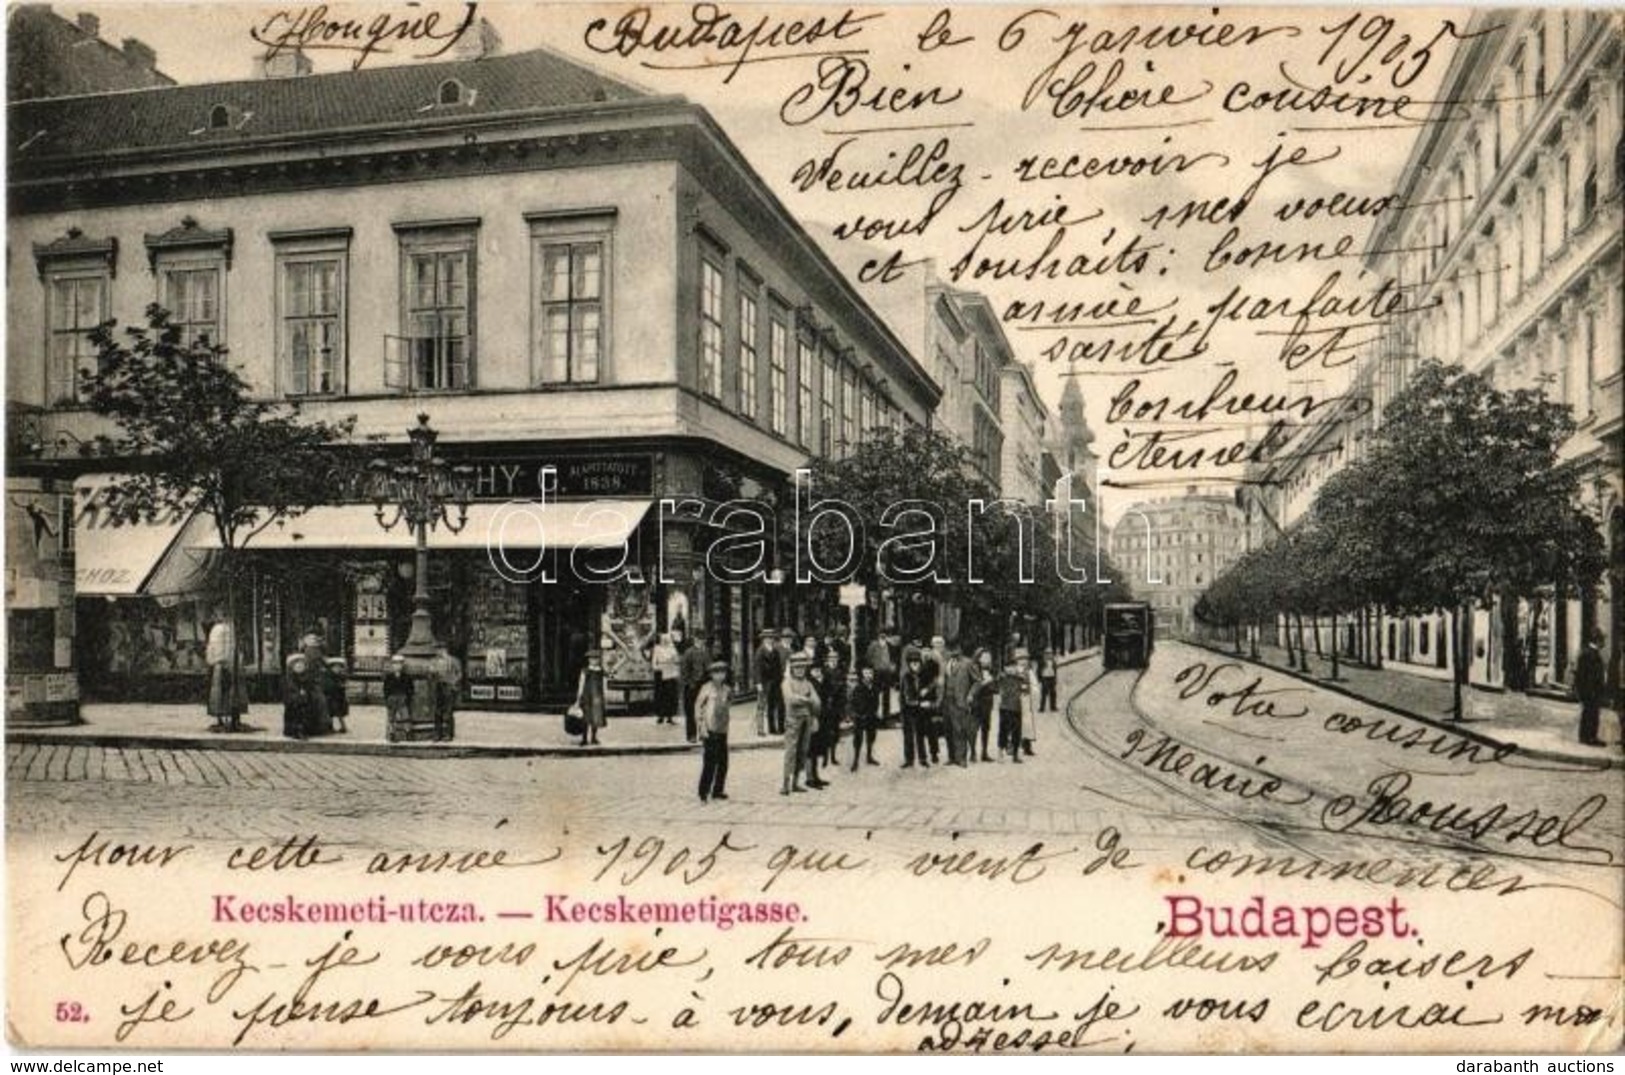 (Hongrie) Budapest le 6 Janvier 1905
Bien Chère cousine
Veuillez-recevoir je
vous prie, mes voeux
et souhaits: bonne
année, parfaite
santé et
bonheur
éternel
HY G. ALAPÍTTATOTT 1838
CHOZ
darabanth
Votre cousine
Marie Roussel
pour cette année 1905 qui vient de commencer
Kecskemeti-utcza. — Kecskemetigasse. Budapest.
Recevez-je vous prie, tous mes meilleurs baisers
52. je pense toujours-à vous, demain je vous écrirai mon
adresse;
darabanth auctions